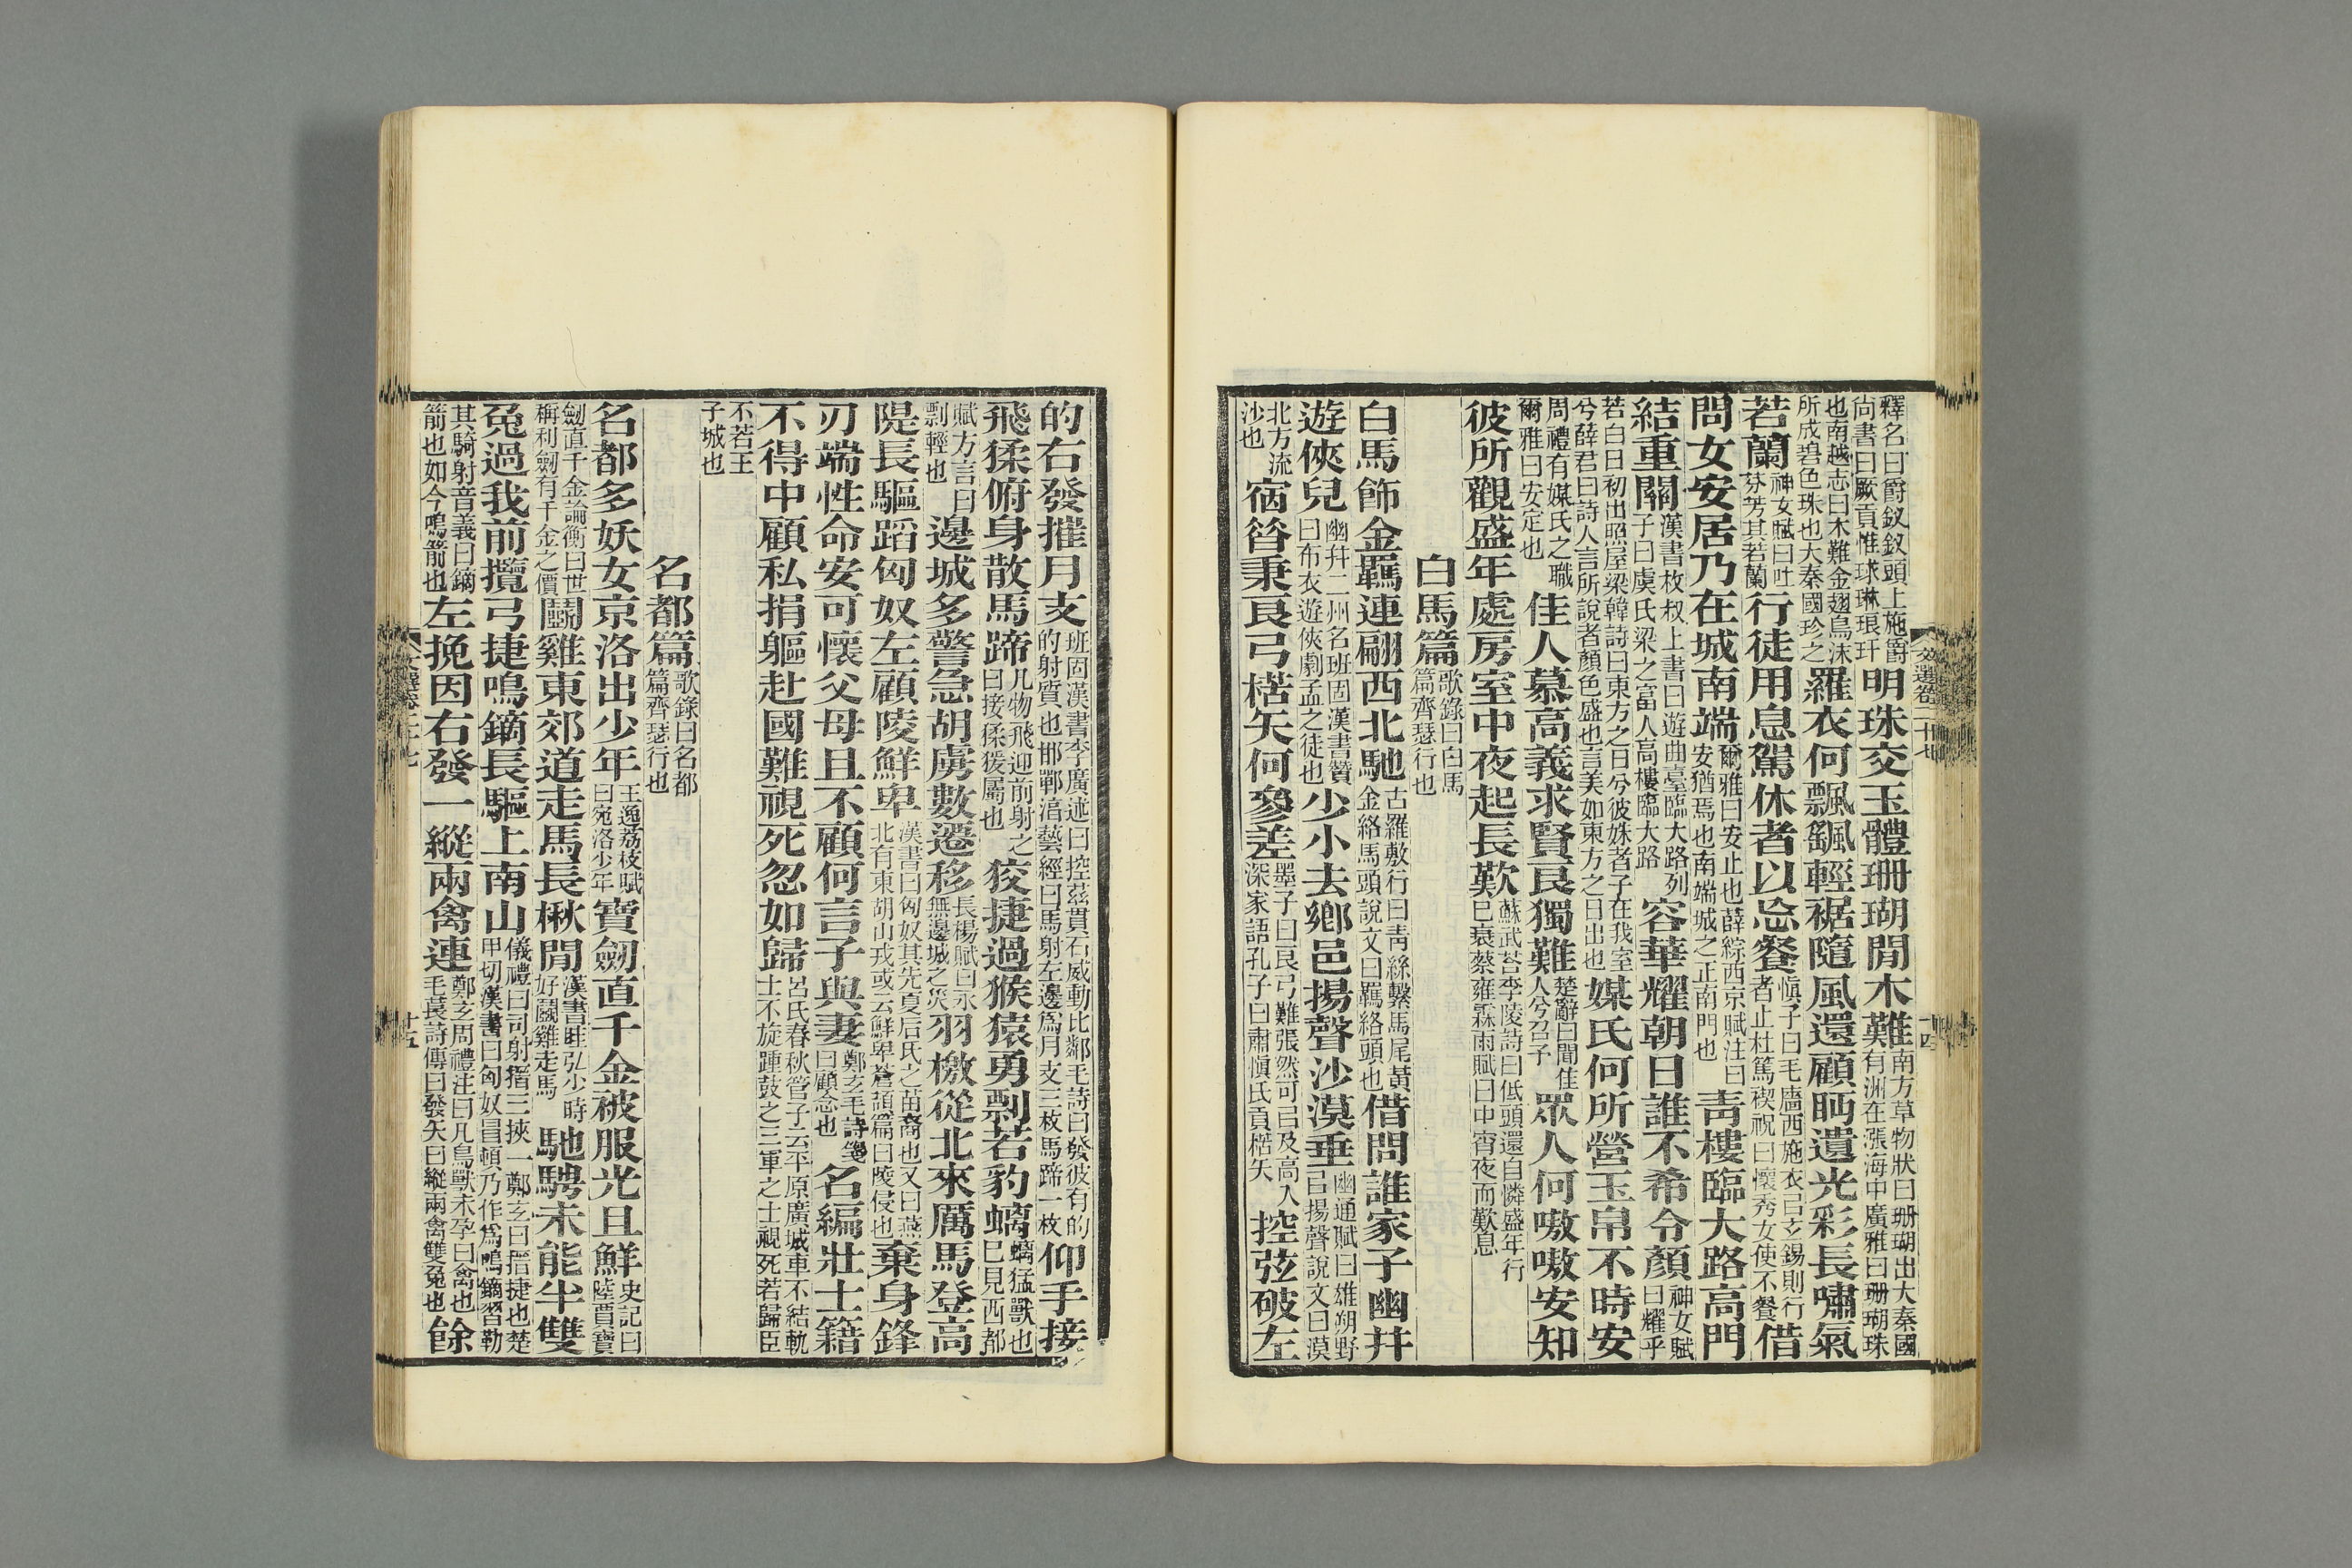 釋名曰爵釵釵頭上施爵
尚書曰厥貢惟球琳琅玕
明珠交玉體珊瑚閒木難
南方草物狀曰珊瑚出大秦國
有洲在漲海中廣雅曰珊瑚珠
也南越志曰木難金翅鳥沫
所成碧色珠也大秦國珍之
羅衣何飄颻輕裾隨風還顧眄遺光彩長嘯氣
若蘭
神女賦曰吐
芬芳其若蘭
行徒用息駕休者以忘餐
愼子曰毛廧西施衣㠯玄錫則行
者止杜篤禊祝曰懷秀女使不餐
借
問女安居乃在城南端
爾雅曰安止也薛綜西京賦注曰
安猶焉也南端城之正南門也
青樓臨大路高門
結重關
漢書枚叔上書曰遊曲臺臨大路列
子曰虞氏梁之富人高樓臨大路
容華耀朝日誰不希令顏
神女賦
曰耀乎
若白日初出照屋梁韓詩曰東方之日兮彼姝者子在我室
兮薛君曰詩人言所說者顏色盛也言美如東方之日出也
媒氏何所營玉帛不時安
周禮有媒氏之職
爾雅曰安定也
佳人慕高義求賢良獨難
楚辭曰聞佳
人兮召予
眾人何嗷嗷安知
彼所觀盛年處房室中夜起長歎
蘇武荅李陵詩曰低頭還自憐盛年行
已衰蔡雍霖雨賦曰中宵夜而歎息
白馬篇
歌錄曰白馬
篇齊瑟行也
白馬飾金羈連翩西北馳
古羅敷行曰靑絲繫馬尾黃
金絡馬頭說文曰羈絡頭也
借問誰家子幽幷
遊俠兒
幽幷二州名班固漢書贊
曰布衣遊俠劇孟之徒也
少小去鄉邑揚聲沙漠垂
幽通賦曰雄朔野
㠯揚聲說文曰漠
北方流
沙也
宿昔秉良弓楛矢何參差
墨子曰良弓難張然可㠯及高入
深家語孔子曰肅愼氏貢楛矢
控弦破左
文選卷二十七
十四
的右發摧月支
班固漢書李廣述曰控弦貫石威動北鄰毛詩曰發彼有的
的射質也邯鄲淳藝經曰馬射左邊爲月支三枚馬蹄一枚
仰手接
飛猱俯身散馬蹄
凡物飛迎前射之
曰接猱猨屬也
狡捷過猴猿勇剽若豹螭
螭猛獸也
已見西都
賦方言曰
剽輕也
邊城多警急胡虜數遷移
長楊賦曰永
無邊城之災
羽檄從北來厲馬登高
隄長驅蹈匈奴左顧陵鮮卑
漢書曰匈奴其先夏后氏之苗裔也又曰燕
北有東胡山戎或云鮮卑蒼頡篇曰陵侵也
棄身鋒
刃端性命安可懷父母且不顧何言子與妻
鄭玄毛詩箋
曰顧念也
名編壯士籍
不得中顧私捐軀赴國難視死忽如歸
呂氏春秋管子云平原廣城車不結軌
士不旋踵鼓之三軍之士視死若歸臣
不若王
子城也
名都篇
歌錄曰名都
篇齊瑟行也
名都多妖女京洛出少年
王逸荔枝賦
曰宛洛少年
寶劒直千金被服光且鮮
史記曰
陸賈寶
劒直千金論衡曰世
稱利劒有千金之價
鬬雞東郊道走馬長楸閒
漢書眭弘少時
好鬬雞走馬
馳騁未能半雙
兔過我前攬弓捷鳴鏑長驅上南山
儀禮曰司射搢三挾一鄭玄曰搢捷也楚
甲切漢書曰匈奴冒頓乃作爲鳴鏑習勒
其騎射音義曰鏑
箭也如今鳴箭也
左挽因右發一縱兩禽連
鄭玄周禮注曰凡鳥獸未孕曰禽也
毛萇詩傳曰發矢曰縱兩禽雙兔也
餘
文選卷二十七
十五